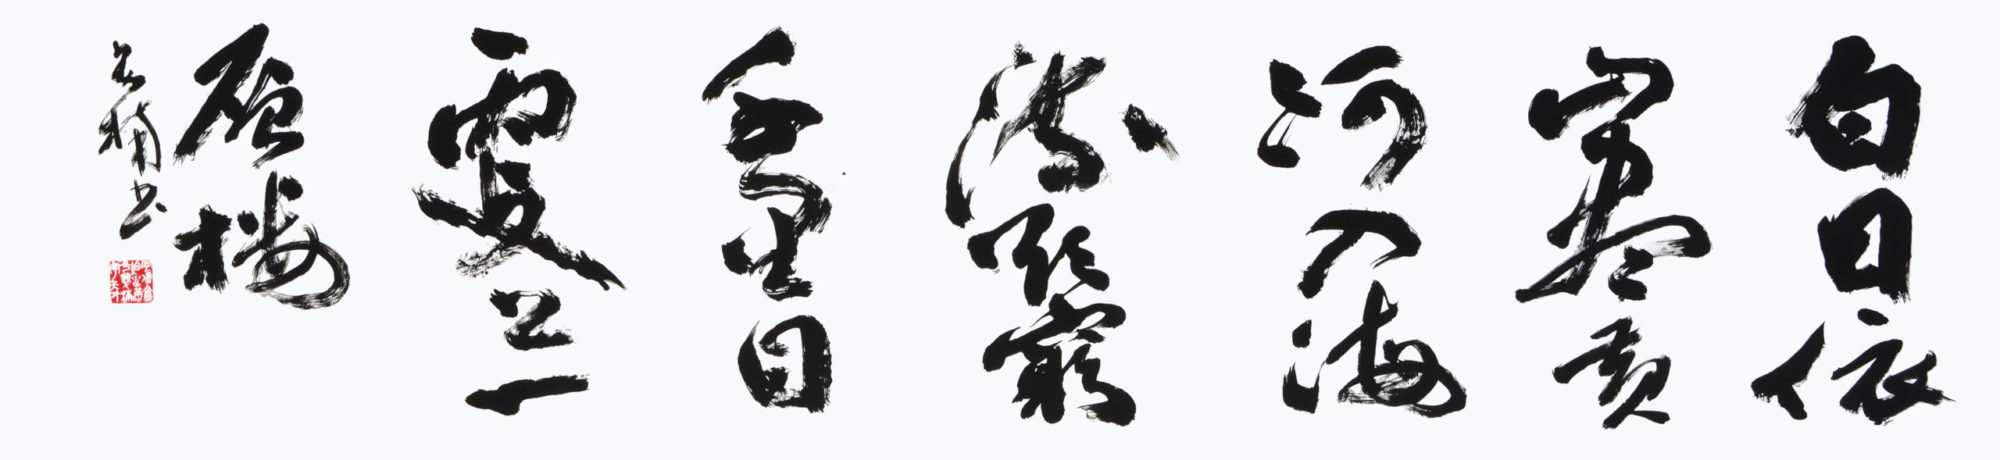 白日依
山尽黄
河入海
流欲窮
千里目
更上一
层楼